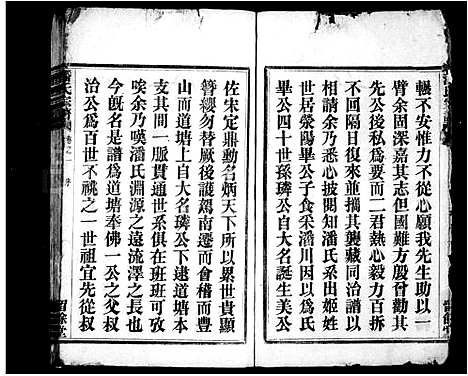 輾不安惟力不從心願我先生助以一
臂余固深嘉其志但國難方殷曾勸其
先公後私爲要而二君熱心毅力百折
不回隔日復來並攜其襲藏同治譜以
世居滎陽畢公子食采潘川因以爲氏
畢公四十世孫璘公自大名誕生美公
佐宋定鼎動名炳天下所以累世貴顯
簪纓勿替厥後護蹕南遷而會稽而豐
山而道塘上自大名璘公下逮道塘本
支其間一脈貫通世系俱在班班可攷
唉余乃嘆潘氏淵源之遠流澤之長也
今旣名是譜爲道塘奉佛一公之父叔
治公爲百世不祧之一世祖宜先從叔